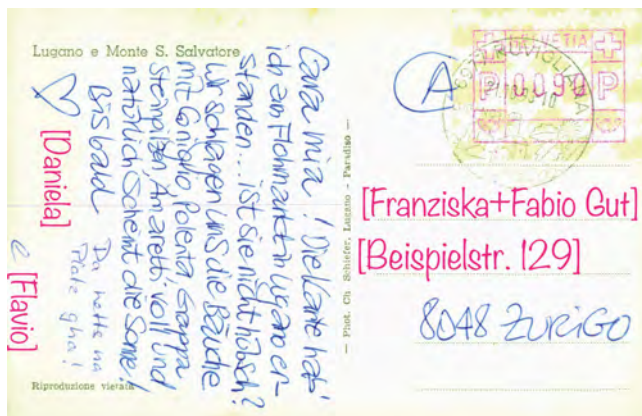 Lugano e Monte S. Salvatore
Cara mia! Die Karte hab'
ich am Flohmarkt in Lugano er-
standen... ist sie nicht hübsch?
Wir schlagen uns die Bäuche
mit Coniglio, Polenta, Grappa
Steinpilzen, Amaretti, voll und
natürlich scheint die Sonne!
Bis bald
♡ [Daniela]
Da hetts na
Platz gha!
e [Flavio]
Riproduzione vietata
— Phot. Ch. Schiefer, Lugano - Paradiso —
A
HELVETIA
P 0090 P
RUVIGLIANA
[Franziska+Fabio Gut]
[Beispielstr. 129]
8048 ZURIGO